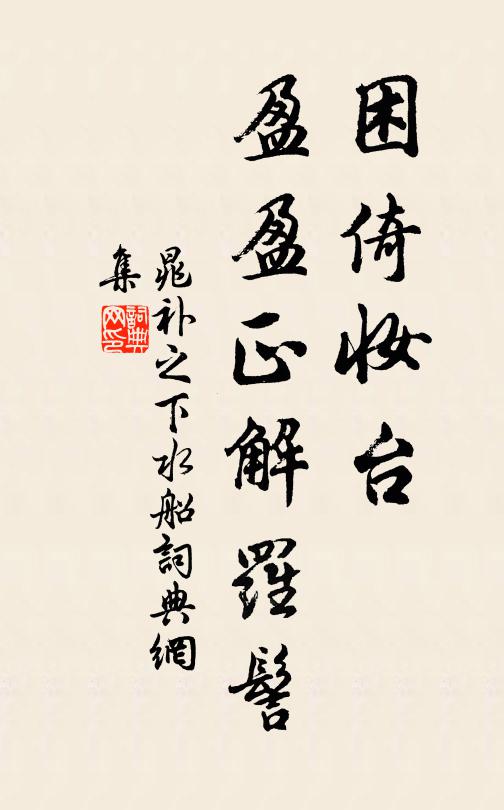 困倚妆台
盈盈正解羅髻
晁补之下水船詞典網
集
詞典
网印